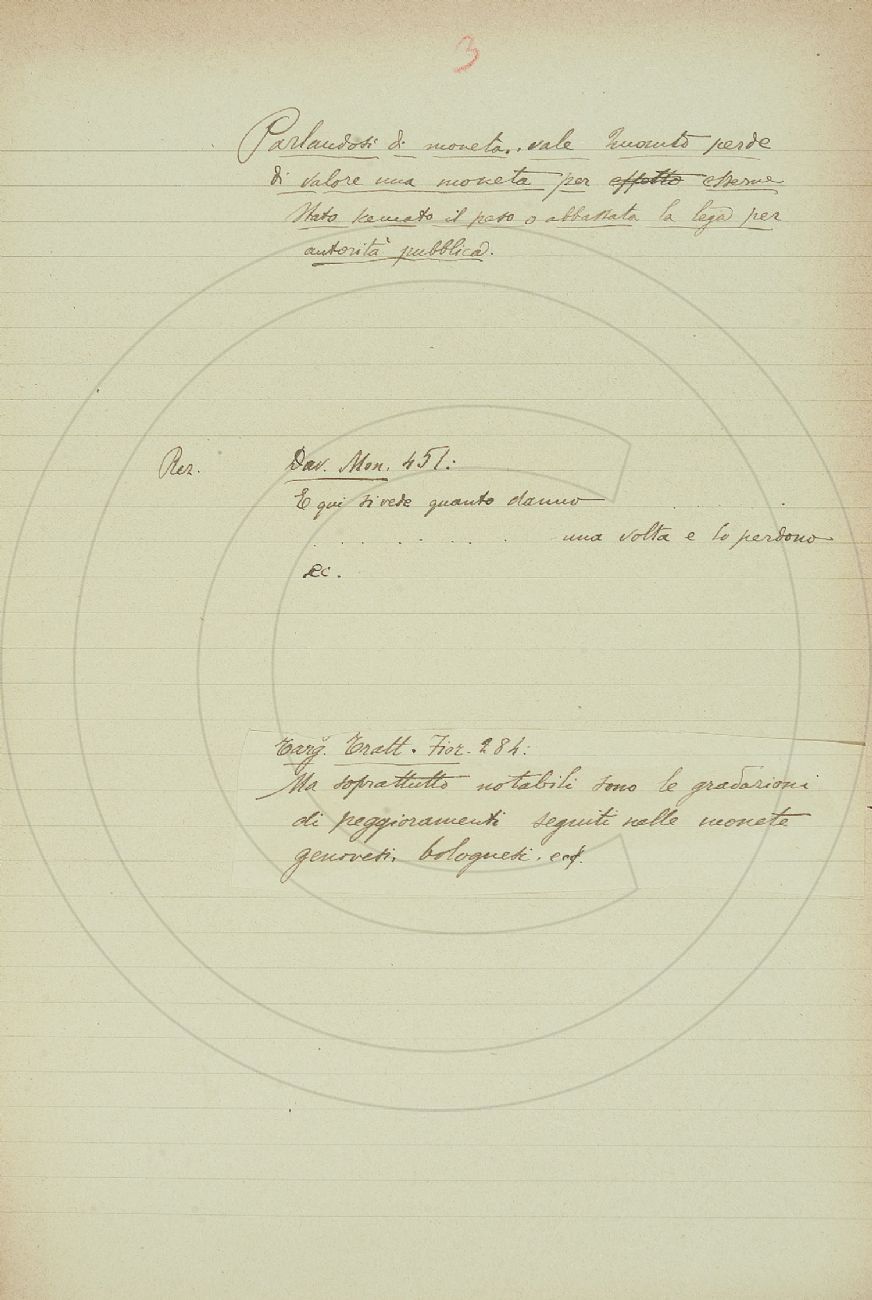 3
Parlandosi di moneta, vale Quanto perde
di valore una moneta per effetto esserne
stato scemato il peso o abbassata la lega per
autorità pubblica.
Rez. Dav. Mon. 451:
E qui si vede quanto danno . . . .
. . . . . . . una volta e lo perdono
ec.
Targ. Tratt. Fior. 284:
Ma soprattutto notabili sono le gradazioni
di peggioramenti seguiti nelle monete
genovesi, bolognesi. ec.